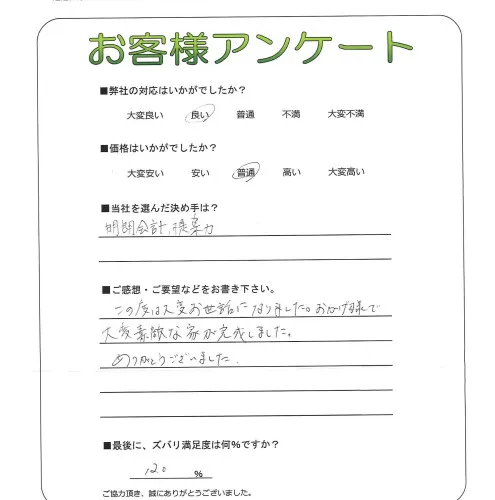 お客様アンケート
■弊社の対応はいかがでしたか？
大変良い 良い 普通 不満 大変不満
■価格はいかがでしたか？
大変安い 安い 普通 高い 大変高い
■当社を選んだ決め手は？
明朗会計、提案力
■ご感想・ご要望などをお書き下さい。
この度は大変お世話になりました。おかげ様で
大変素敵な家が完成しました。
ありがとうございました.
■最後に、ズバリ満足度は何%ですか？
120 %
ご協力頂き、誠にありがとうございました。